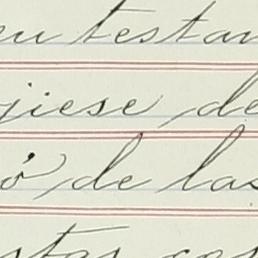 en testam
jiese de
ó de las
stas cos